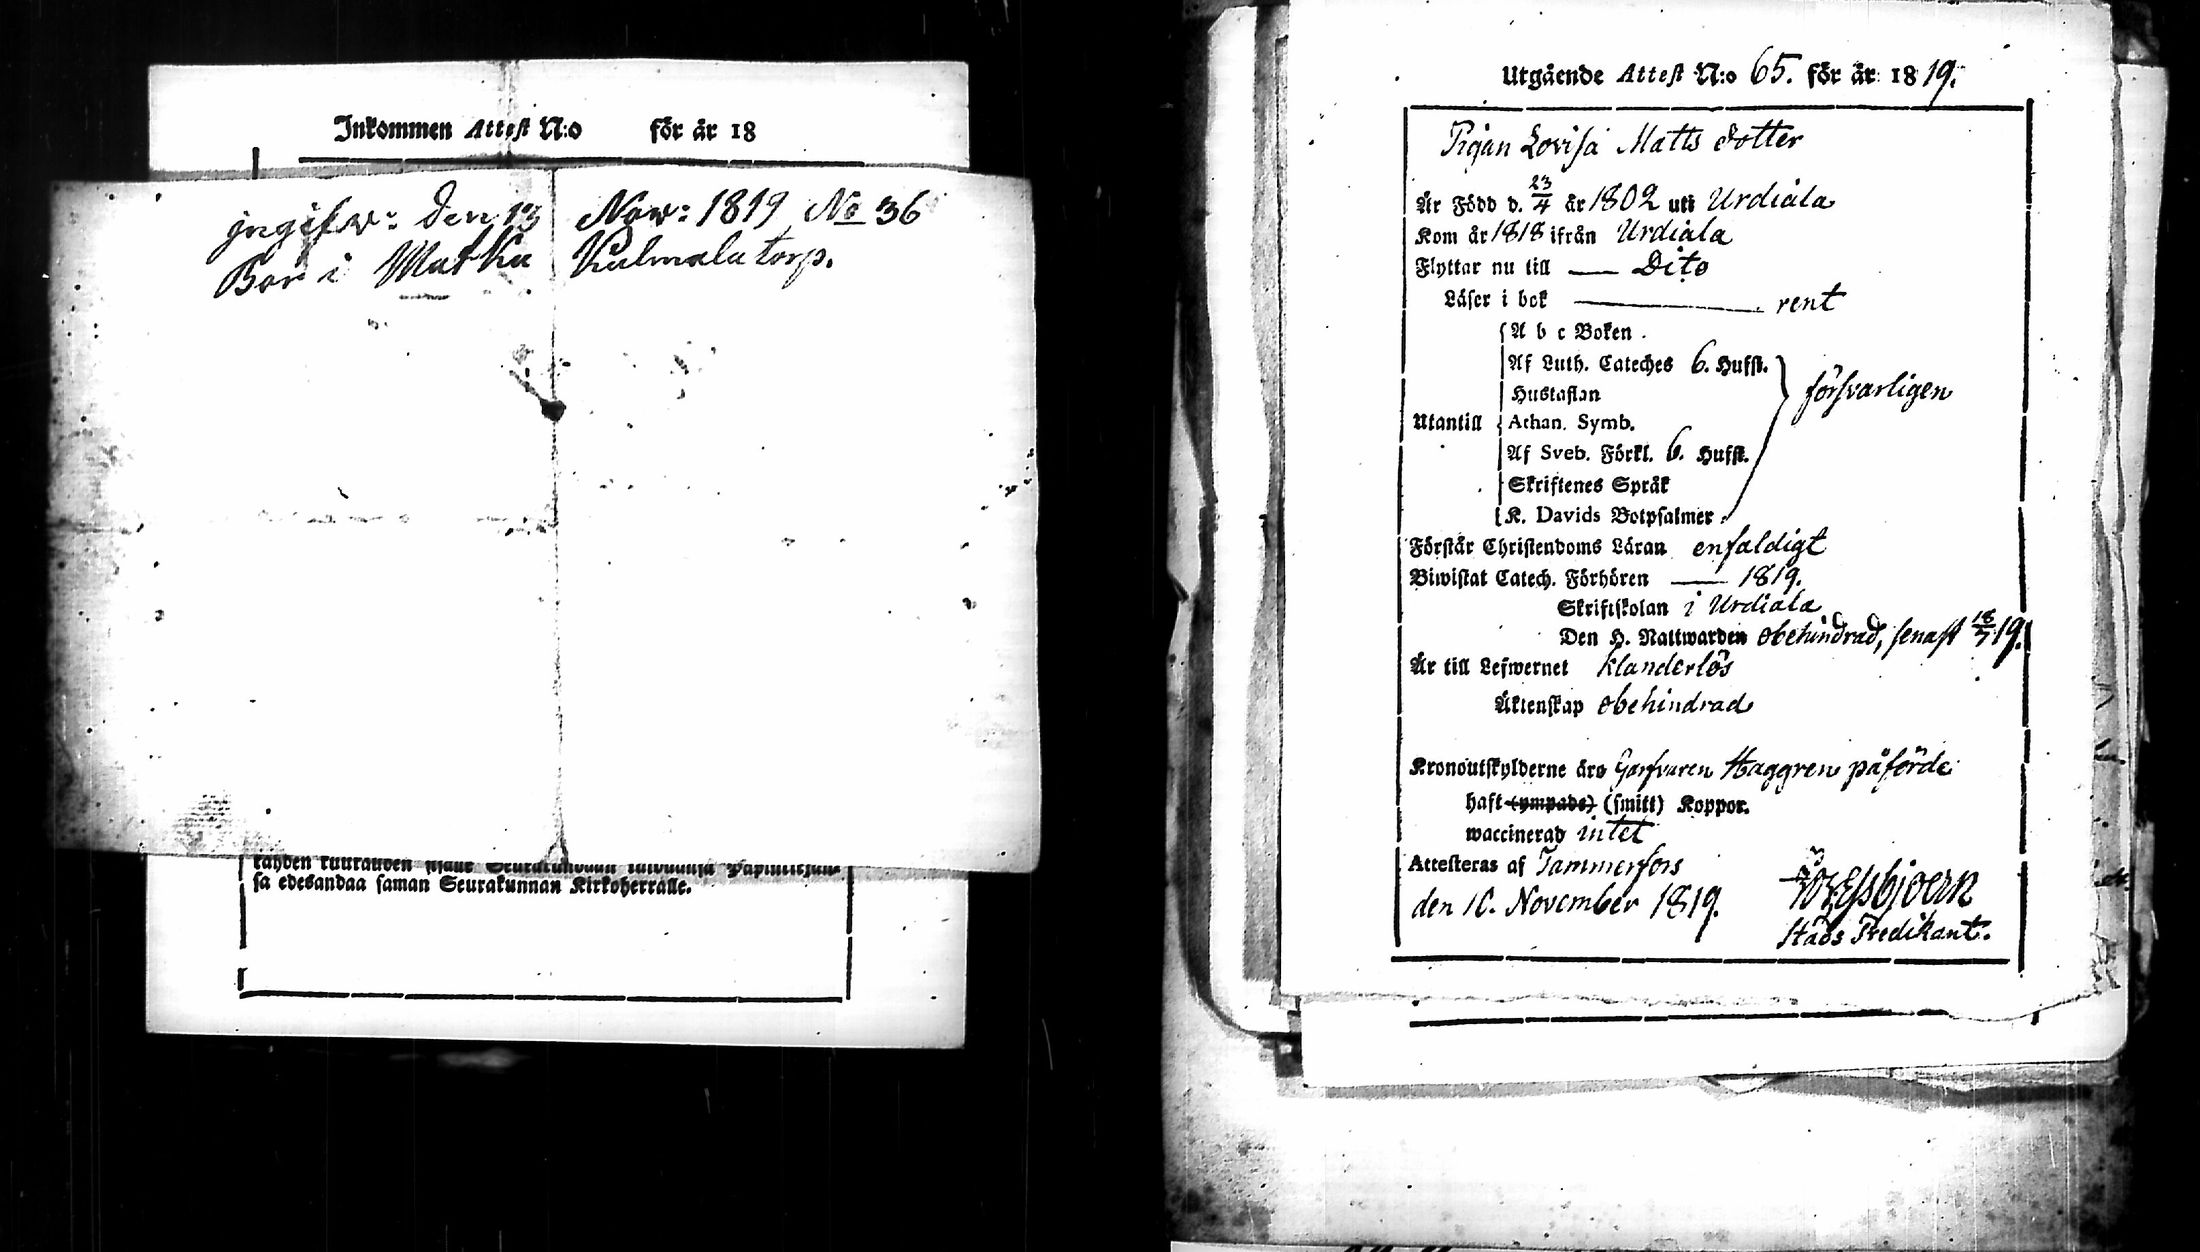 Inkommen Attest N:o för år 18
ingifw: den 13 Nov: 1819 No 36
Bor i Matku Kulmala torp.
sa edesandaa saman Seurakunnan Kirkoherralle.
Utgående Attest N:o 65. för år 1819.
Pigan Lovisa Matts dotter
Är Född d. 23/4 år 1802 uti Urdiala
Kom år 1818 ifrån Urdiala
Flyttar nu till — Dito
Läser i bok — rent
A b c Boken
Af Luth. Cateches 6. Hufst.
Hustaflan
försvarligen
Utantill Athan. Symb.
Af Sveb. Förkl. 6. Hufst.
Skriftenes Språk
K. Davids Botpsalmer
Förstår Christendoms Läran enfaldigt
Biwistat Catech. Förhören — 1819.
Skriftskolan i Urdiala
Den H. Nattwarden obehindrad, senast 18/7 19.
Är till Lefwernet klanderlös
Äktenskap obehindrad
Kronoutskylderne äro Garfvaren Haggren påförde
haft (ympade) (smitt) Koppor.
waccinerad intet
Attesteras af Tammerfors
den 10. November 1819.
Stads Predikant.